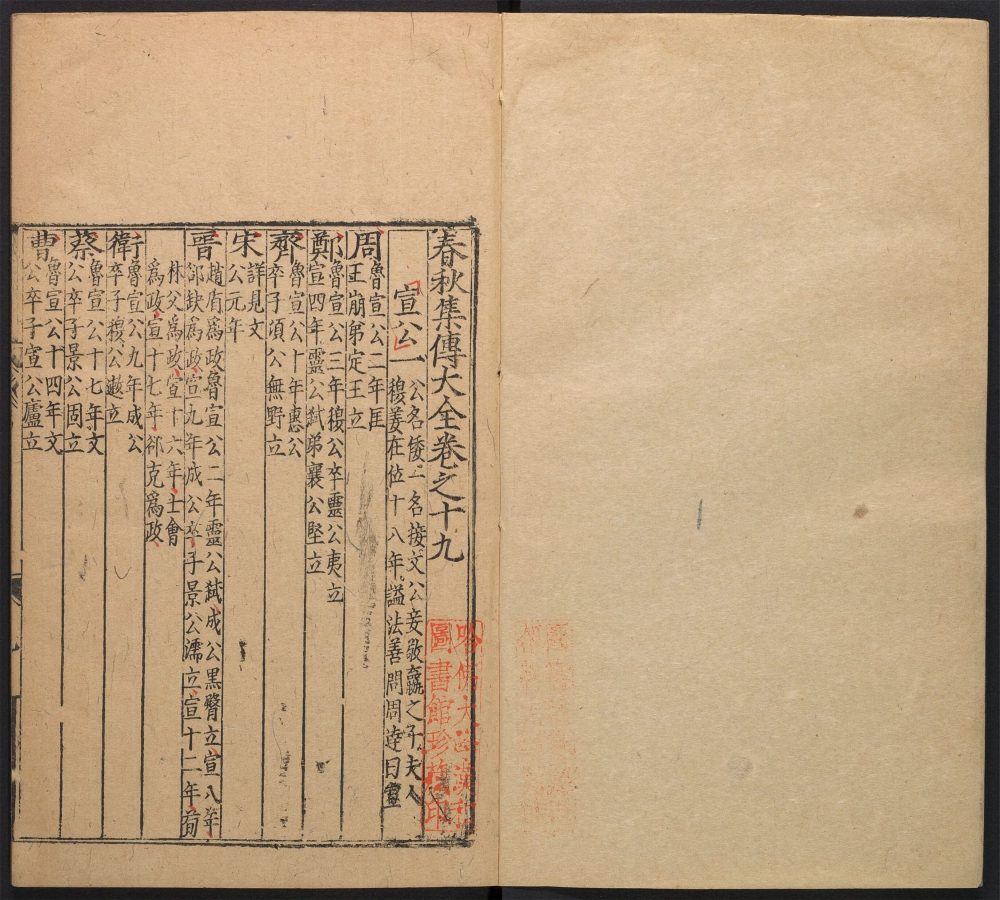 春秋集傳大全卷之十九
宣公一
公名倭一名接文公妾敬嬴之子夫人
穆姜在位十八年謚法善問周達曰宣
周
魯宣公二年匡
王崩弟定王立
鄭
魯宣公三年穆公卒靈公夷立
宣四年靈公弑弟襄公堅立
齊
魯宣公十年惠公
卒子頃公無野立
宋
詳見文
公元年
晉
趙盾爲政魯宣公二年靈公弑成公黑臀立宣八年
郤缺爲政宣九年成公卒子景公獳立宣十二年荀
林父爲政宣十六年士會
爲政宣十七年郤克爲政
衛
魯宣公九年成公
卒子穆公遫立
蔡
魯宣公十七年文
公卒子景公固立
曹
魯宣公十四年文
公卒子宣公廬立
哈佛大學漢和
圖書館珍藏印